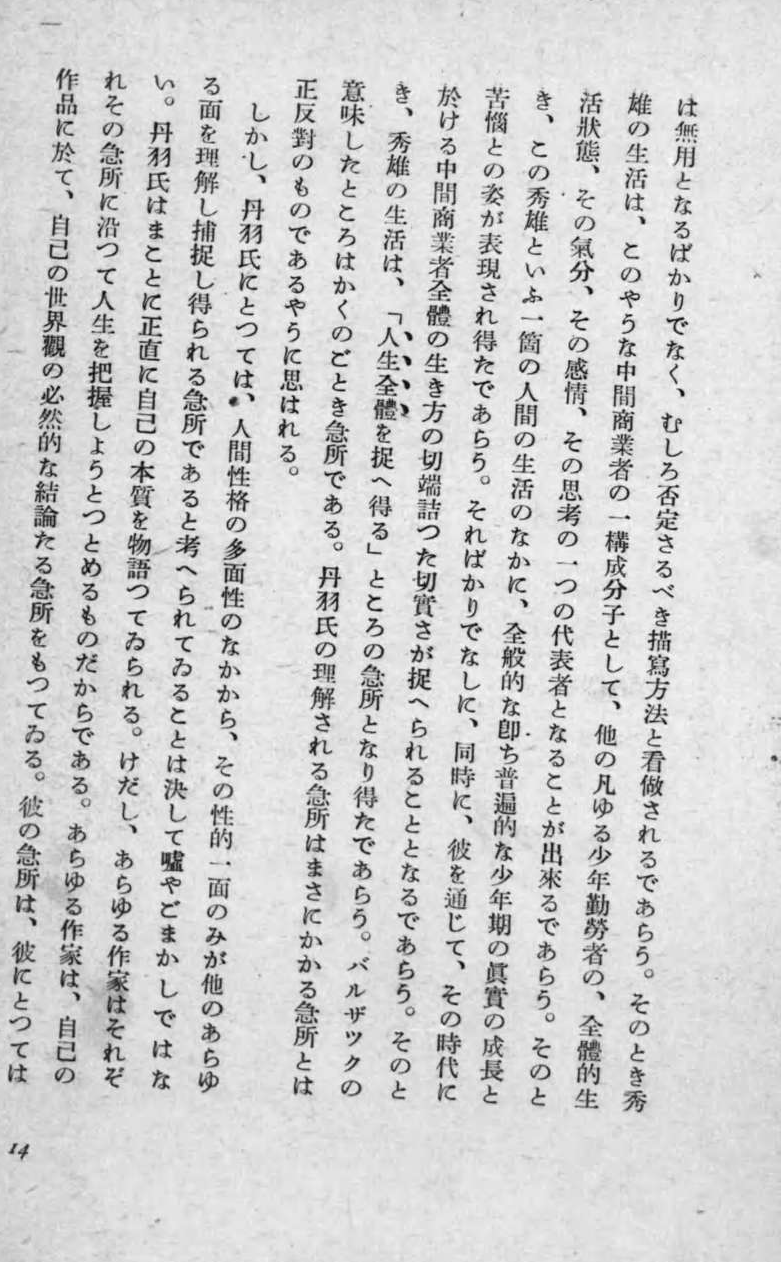 は無用となるばかりでなく、むしろ否定さるべき描寫方法と看做されるであらう。そのとき秀
雄の生活は、このやうな中間商業者の一構成分子として、他の凡ゆる少年勤勞者の、全體的生
活狀態、その氣分、その感情、その思考の一つの代表者となることが出來るであらう。そのと
き、この秀雄といふ一箇の人間の生活のなかに、全般的な卽ち普遍的な少年期の眞實の成長と
苦惱との姿が表現され得たであらう。そればかりでなしに、同時に、彼を通じて、その時代に
於ける中間商業者全體の生き方の切端詰つた切實さが捉へられることとなるであらう。そのと
き、秀雄の生活は、「人生全體を捉へ得る」ところの急所となり得たであらう。バルザツクの
意味したところはかくのごとき急所である。丹羽氏の理解される急所はまさにかかる急所とは
正反對のものであるやうに思はれる。
しかし、丹羽氏にとつては、人間性格の多面性のなかから、その性的一面のみが他のあらゆ
る面を理解し捕捉し得られる急所であると考へられてゐることは決して嘘やごまかしではな
い。丹羽氏はまことに正直に自己の本質を物語つてゐられる。けだし、あらゆる作家はそれぞ
れその急所に沿つて人生を把握しようとつとめるものだからである。あらゆる作家は、自己の
作品に於て、自己の世界觀の必然的な結論たる急所をもつてゐる。彼の急所は、彼にとつては
14